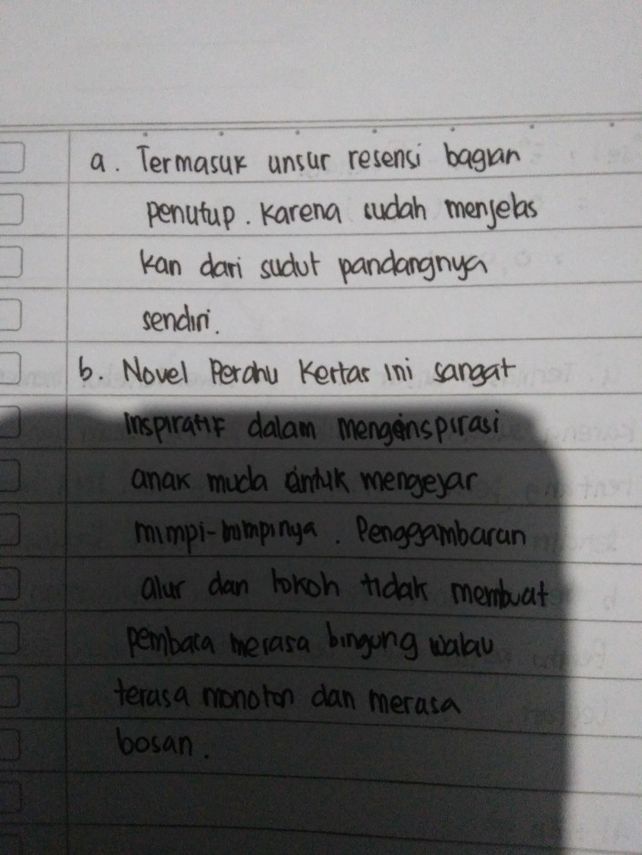 a. Termasuk unsur resensi bagian
penutup. Karena sudah menjelas
kan dari sudut pandangnya
sendiri.
b. Novel Perahu Kertas ini sangat
inspiratif dalam menginspirasi
anak muda untuk mengejar
mimpi-mimpinya. Penggambaran
alur dan tokoh tidak membuat
pembaca merasa bingung walau
terasa monoton dan merasa
bosan.